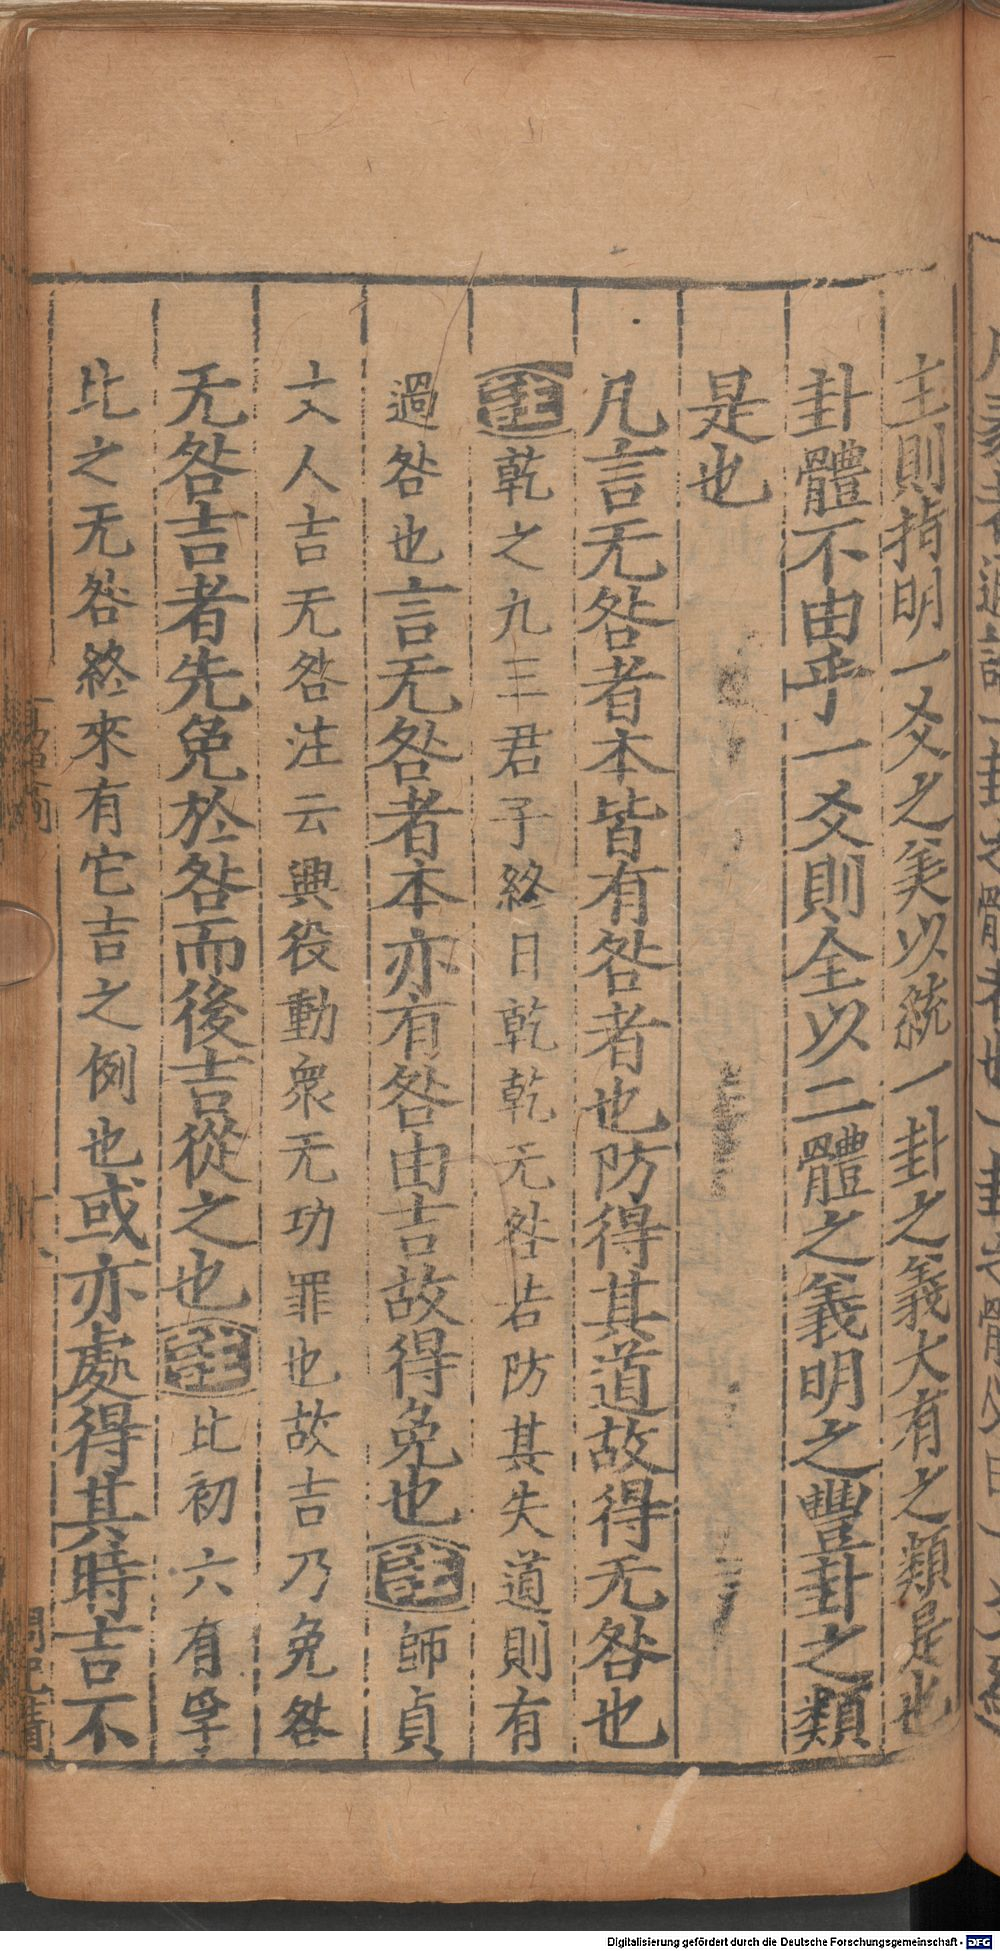 主則指明一爻之美以統一卦之義大有之類是也
卦體不由乎一爻則全以二體之義明之豐卦之類
是也
凡言无咎者本皆有咎者也防得其道故得无咎也
註乾之九三君子終日乾乾无咎若防其失道則有
過咎也言无咎者本亦有咎由吉故得免也註師貞
丈人吉无咎注云興役動衆无功罪也故吉乃免咎
无咎吉者先免於咎而後吉從之也註比初六有孚
比之无咎終來有它吉之例也或亦處得其時吉不
Digitalisierung gefördert durch die Deutsche Forschungsgemeinschaft - DFG